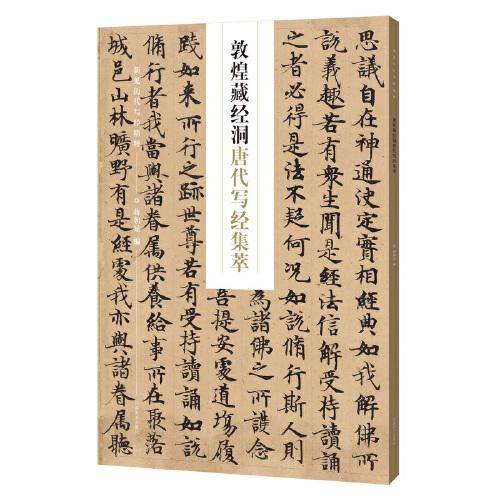 思議自在神通决定實相經典如我解佛所
説義趣若有衆生聞是經法信解受持讀誦
之者必得是法不疑何況如説脩行斯人則
敦煌藏经洞唐代写经集萃
為諸佛之所護念
菩提安處道場履
踐如来所行之跡世尊若有受持讀誦如説
脩行者我當與諸眷属供養給事所在聚落
城邑山林曠野有是經處我亦與諸眷属聽